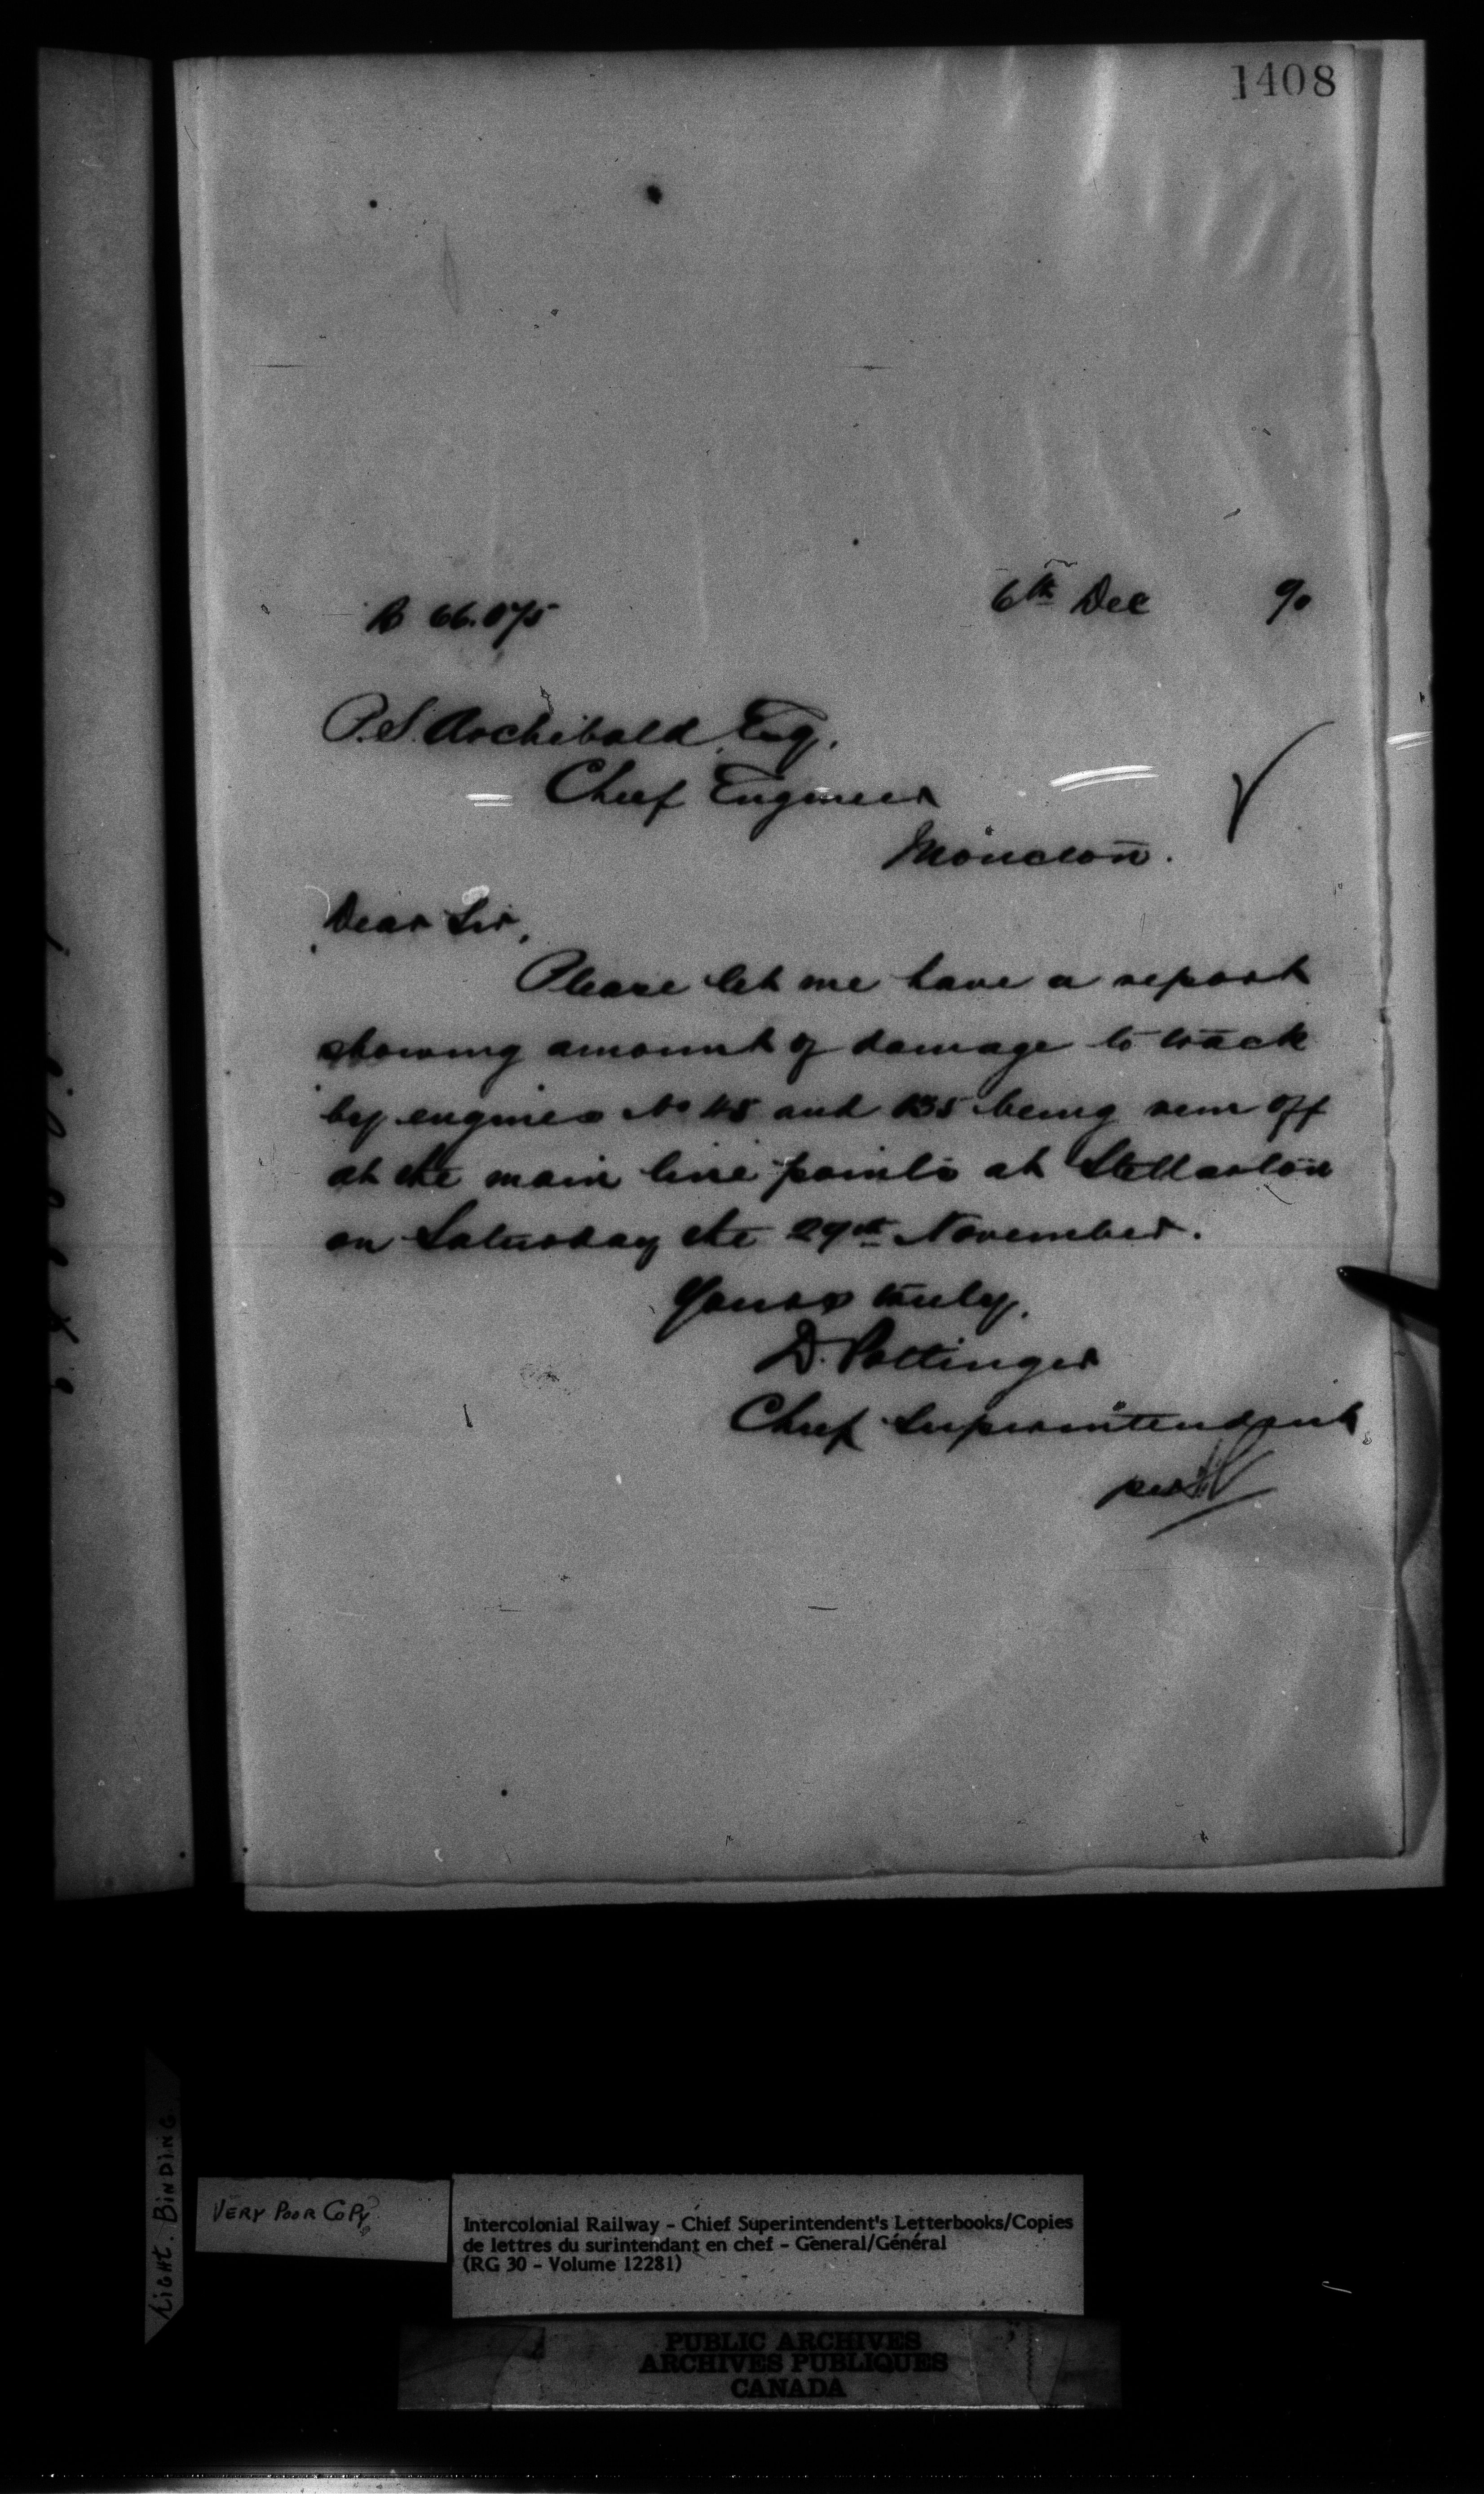 1408
B 66.075
6th Dec 90
P.S. Archibald, Esq.
Chief Engineer
Moncton.
Dear Sir,
Please let me have a report
showing amount of damage to track
by engines No 45 and 135 being run off
at the main line points at Stellarton
on Saturday the 29th November.
Yours truly,
D. Pottinger
Chief Superintendent
per
LIGHT. BINDING.
VERY POOR COPY
Intercolonial Railway - Chief Superintendent's Letterbooks/Copies
de lettres du surintendant en chef - General/Général
(RG 30 - Volume 12281)
PUBLIC ARCHIVES
ARCHIVES PUBLIQUES
CANADA